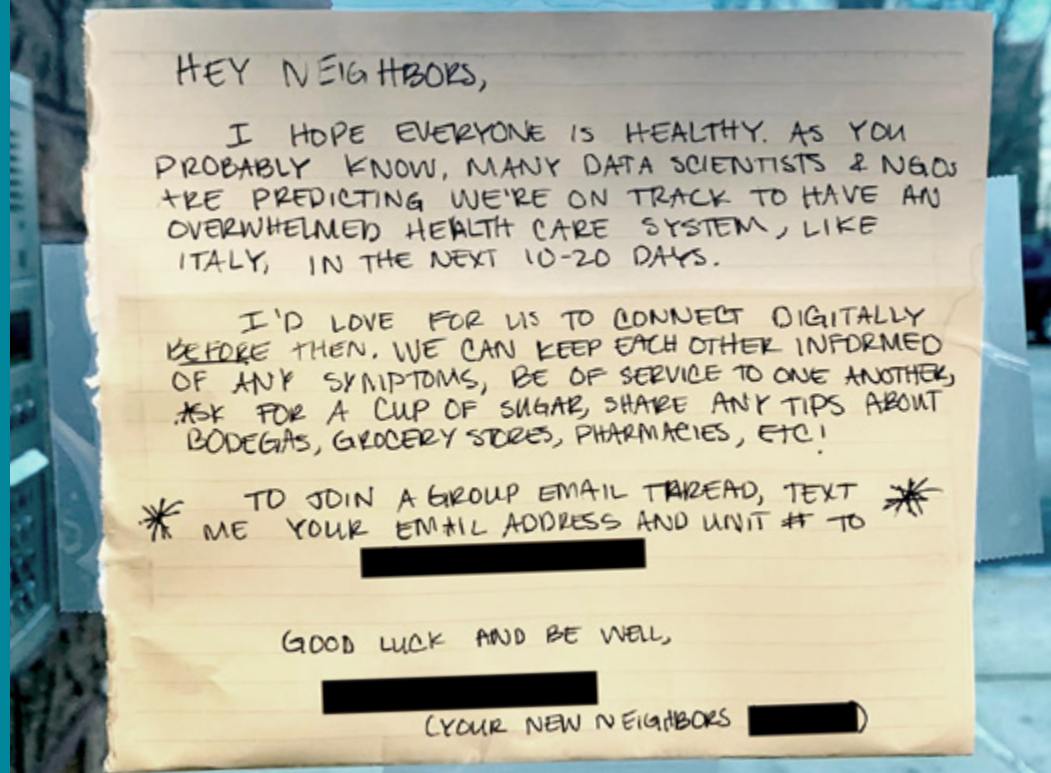 HEY NEIGHBORS,
I HOPE EVERYONE IS HEALTHY. AS YOU
PROBABLY KNOW, MANY DATA SCIENTISTS & NGOs
ARE PREDICTING WE'RE ON TRACK TO HAVE AN
OVERWHELMED HEALTH CARE SYSTEM, LIKE
ITALY, IN THE NEXT 10-20 DAYS.
I'D LOVE FOR US TO CONNECT DIGITALLY
BEFORE THEN. WE CAN KEEP EACH OTHER INFORMED
OF ANY SYMPTOMS, BE OF SERVICE TO ONE ANOTHER,
ASK FOR A CUP OF SUGAR, SHARE ANY TIPS ABOUT
BODEGAS, GROCERY STORES, PHARMACIES, ETC!
* TO JOIN A GROUP EMAIL THREAD, TEXT *
ME YOUR EMAIL ADDRESS AND UNIT # TO
GOOD LUCK AND BE WELL,
(YOUR NEW NEIGHBORS )